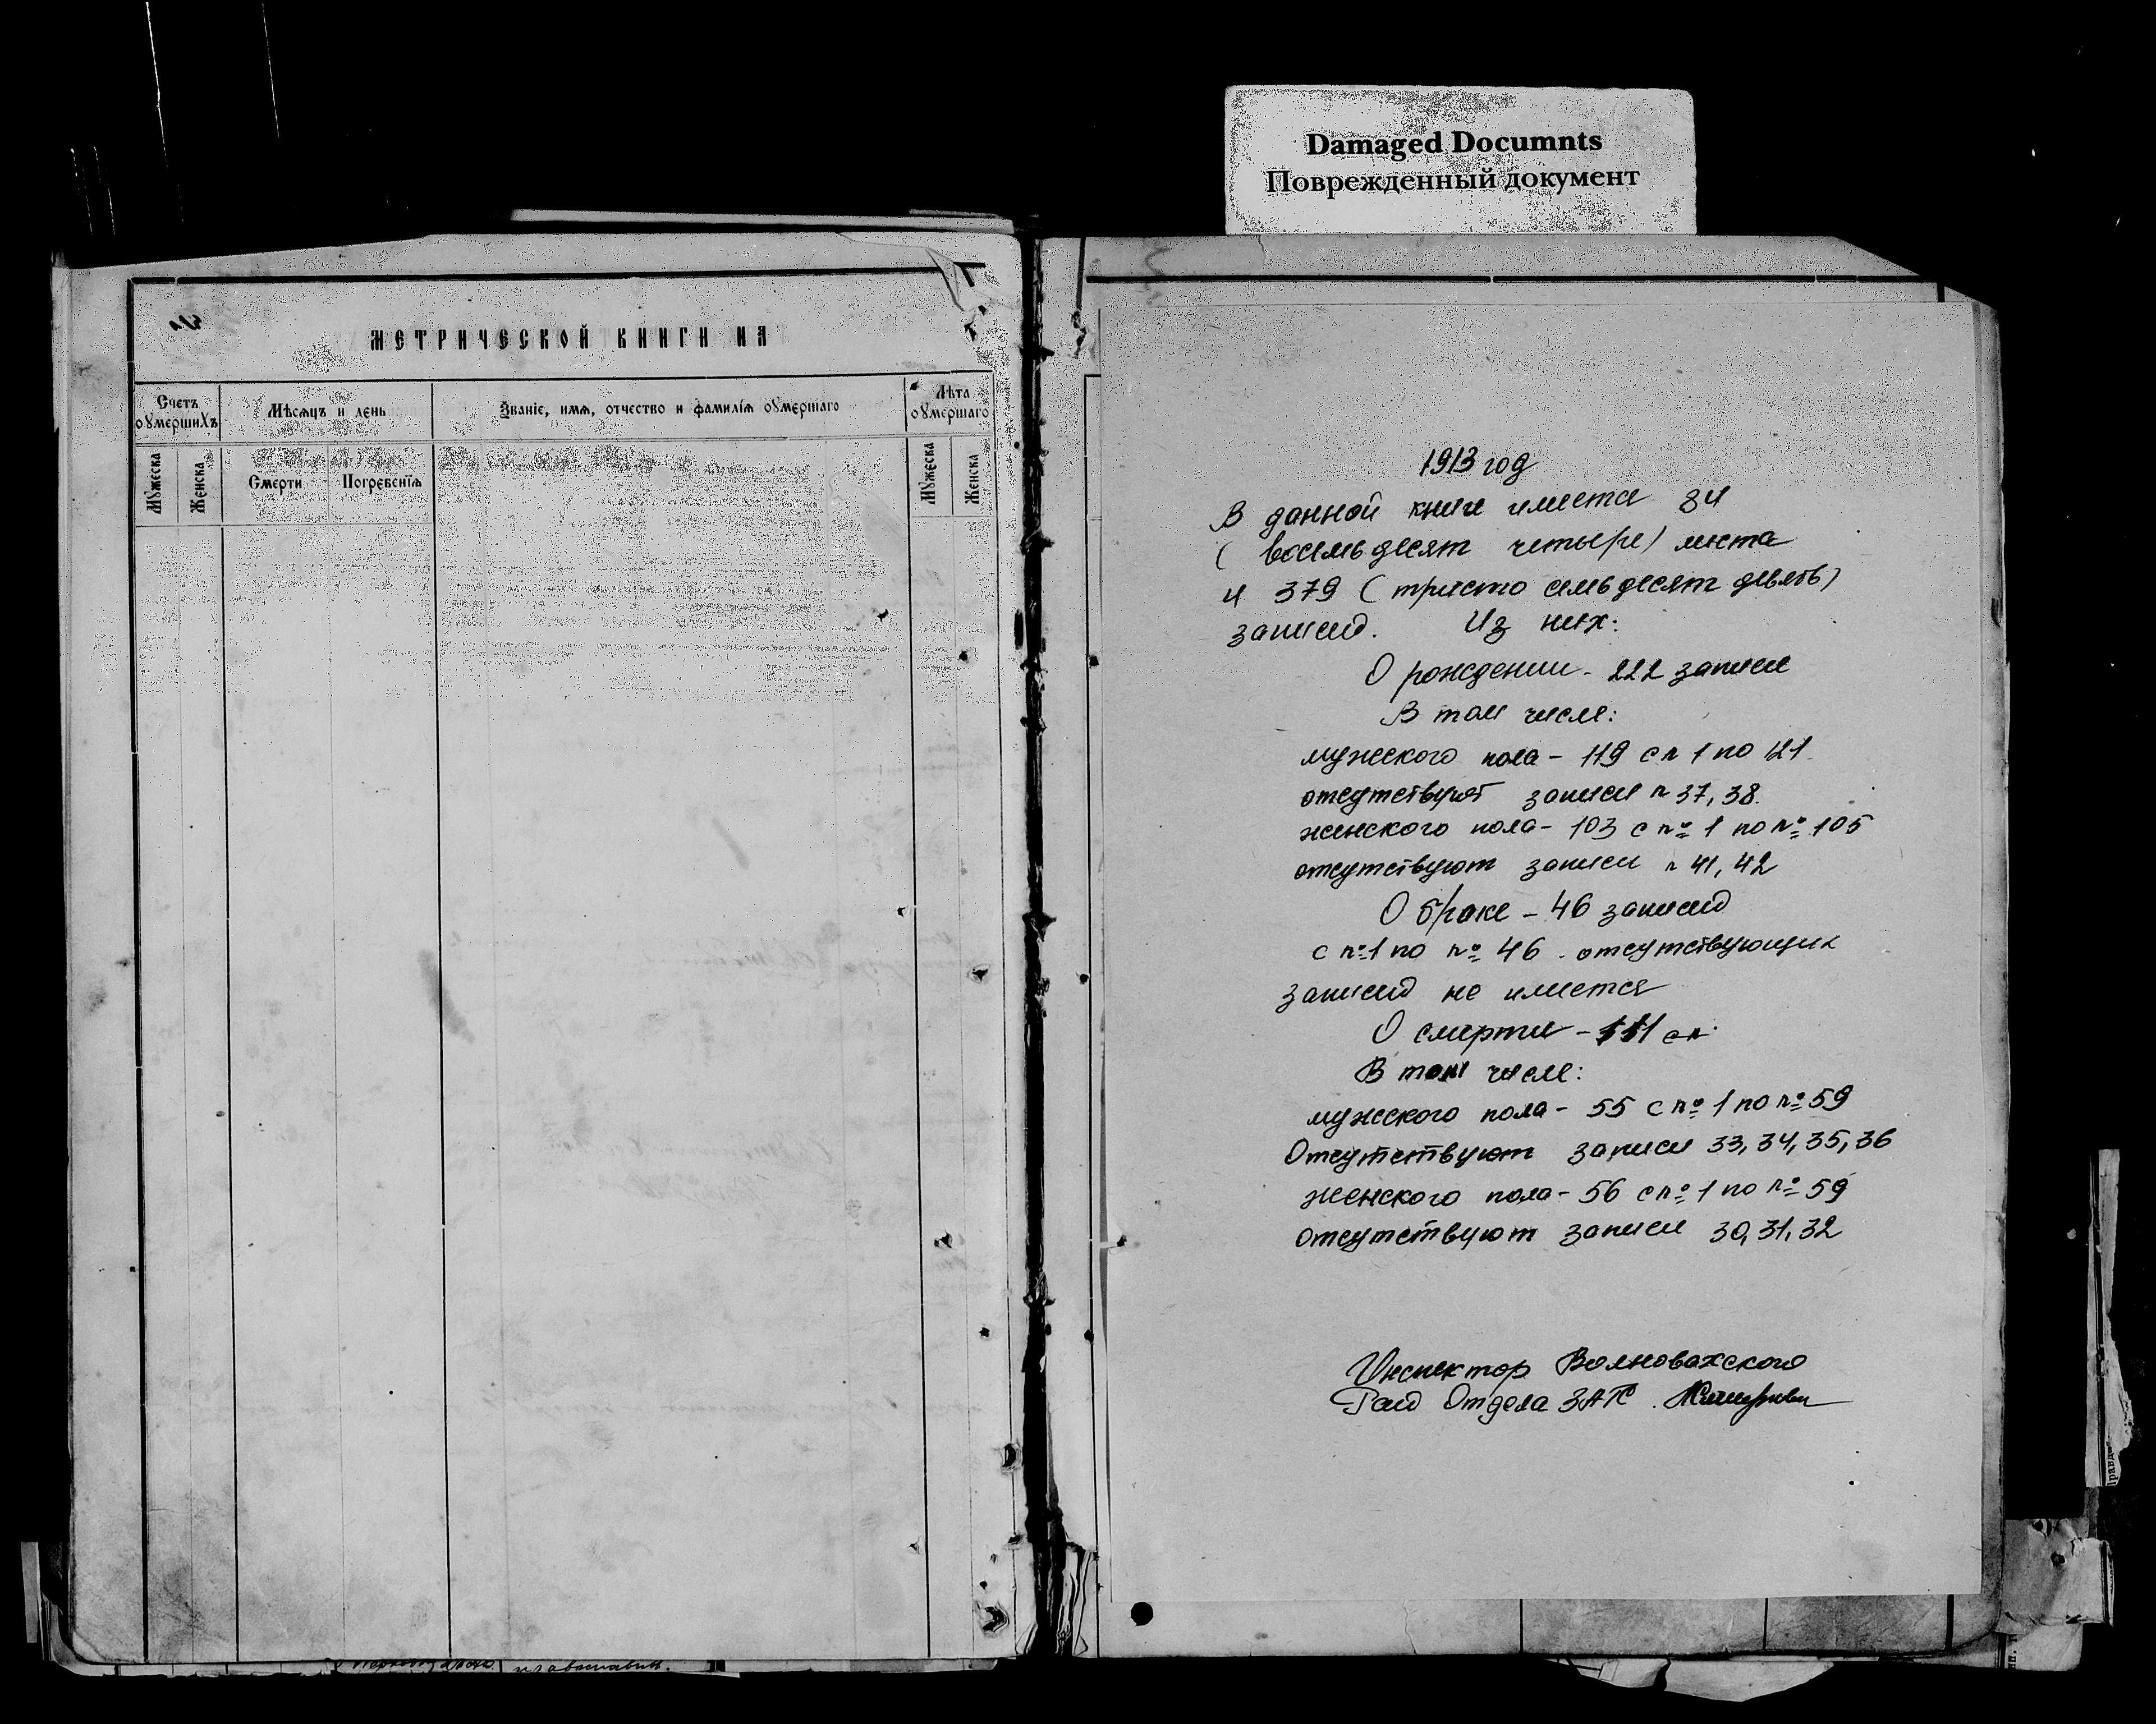 Damaged Documnts
Поврежденный документ
МЕТРИЧЕСКОЙ КНИГИ НА
Счетъ оумершихъ
Мѣсяцъ и день
Званіе, имя, отчество и фамилія оумершаго
Лѣта оумершаго
Мужеска
Женска
Смерти
Погребенія
Мужеска
Женска
1913 год
В данной книге имеется 84
(восемьдесят четыре) листа
и 379 (тристо семьдесят девять)
записей. Из них:
О рождении - 222 записи
В том числе:
мужского пола - 119 с n 1 по 121
отсутствуют записи n 37, 38.
женского пола - 103 с nº 1 по nº 105
отсутствуют записи n 41, 42
О браке - 46 записей
с nº 1 по nº 46. отсутствующих
записей не имеется
О смерти - 111
В том числе:
мужского пола - 55 с nº 1 по nº 59
Отсутствуют записи 33, 34, 35, 36
женского пола - 56 с nº 1 по nº 59
отсутствуют записи 30, 31, 32
Инспектор Волновахского
Рай Отдела ЗАГС